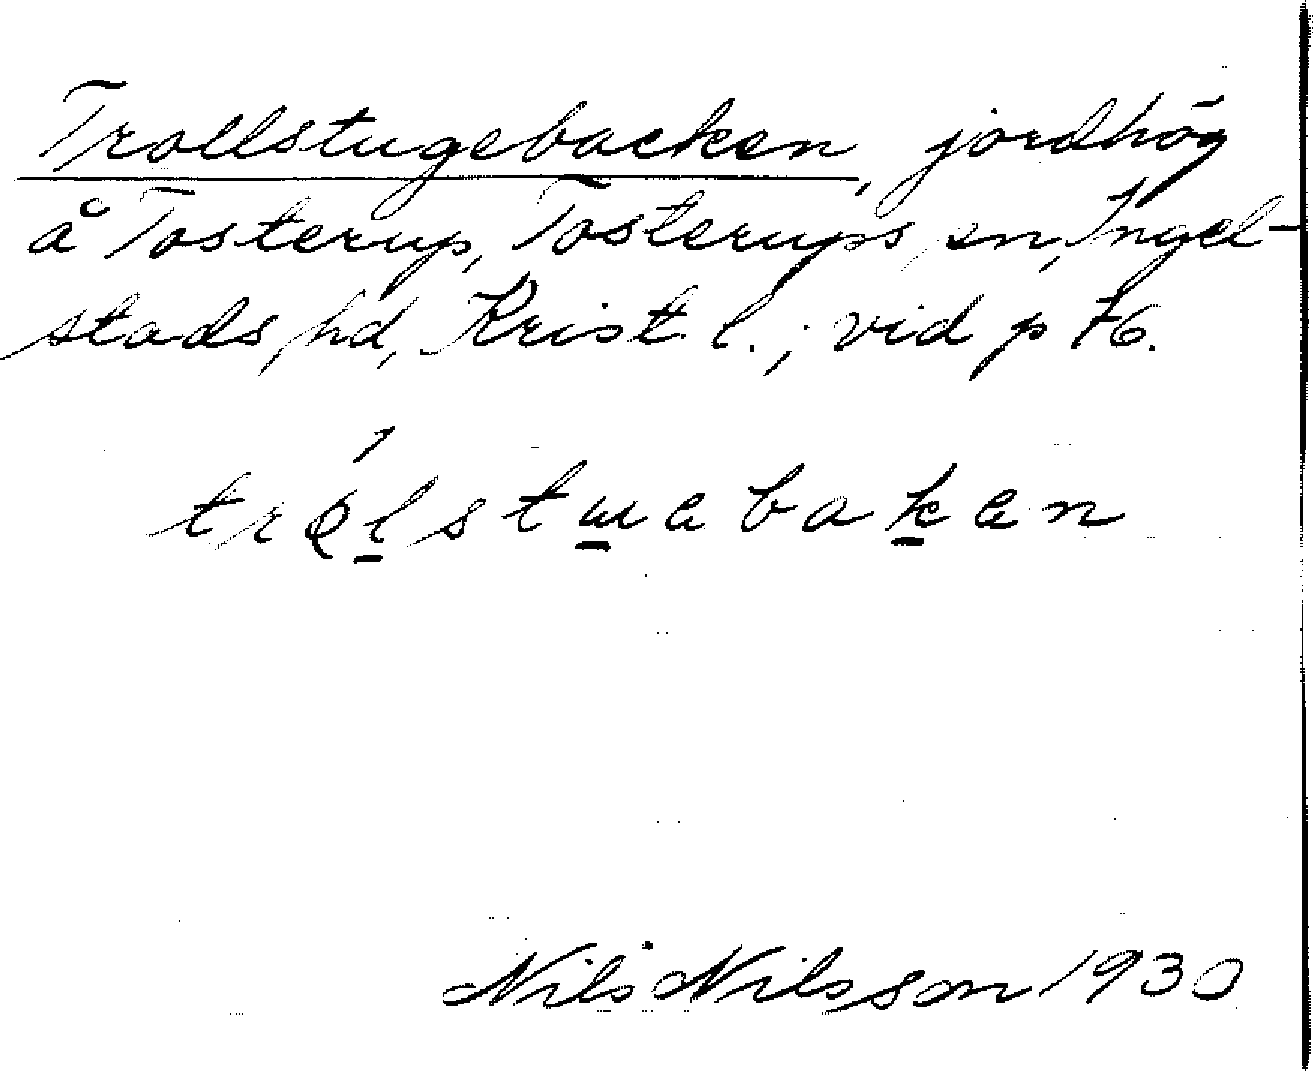 Trollstugebacken, jordhög
å Tosterup, Tosterups sn, Ingel-
stads hd, Krist. l.; vid p 76.
trǫ́l̲stu̲abak̲an
Nils Nilsson 1930